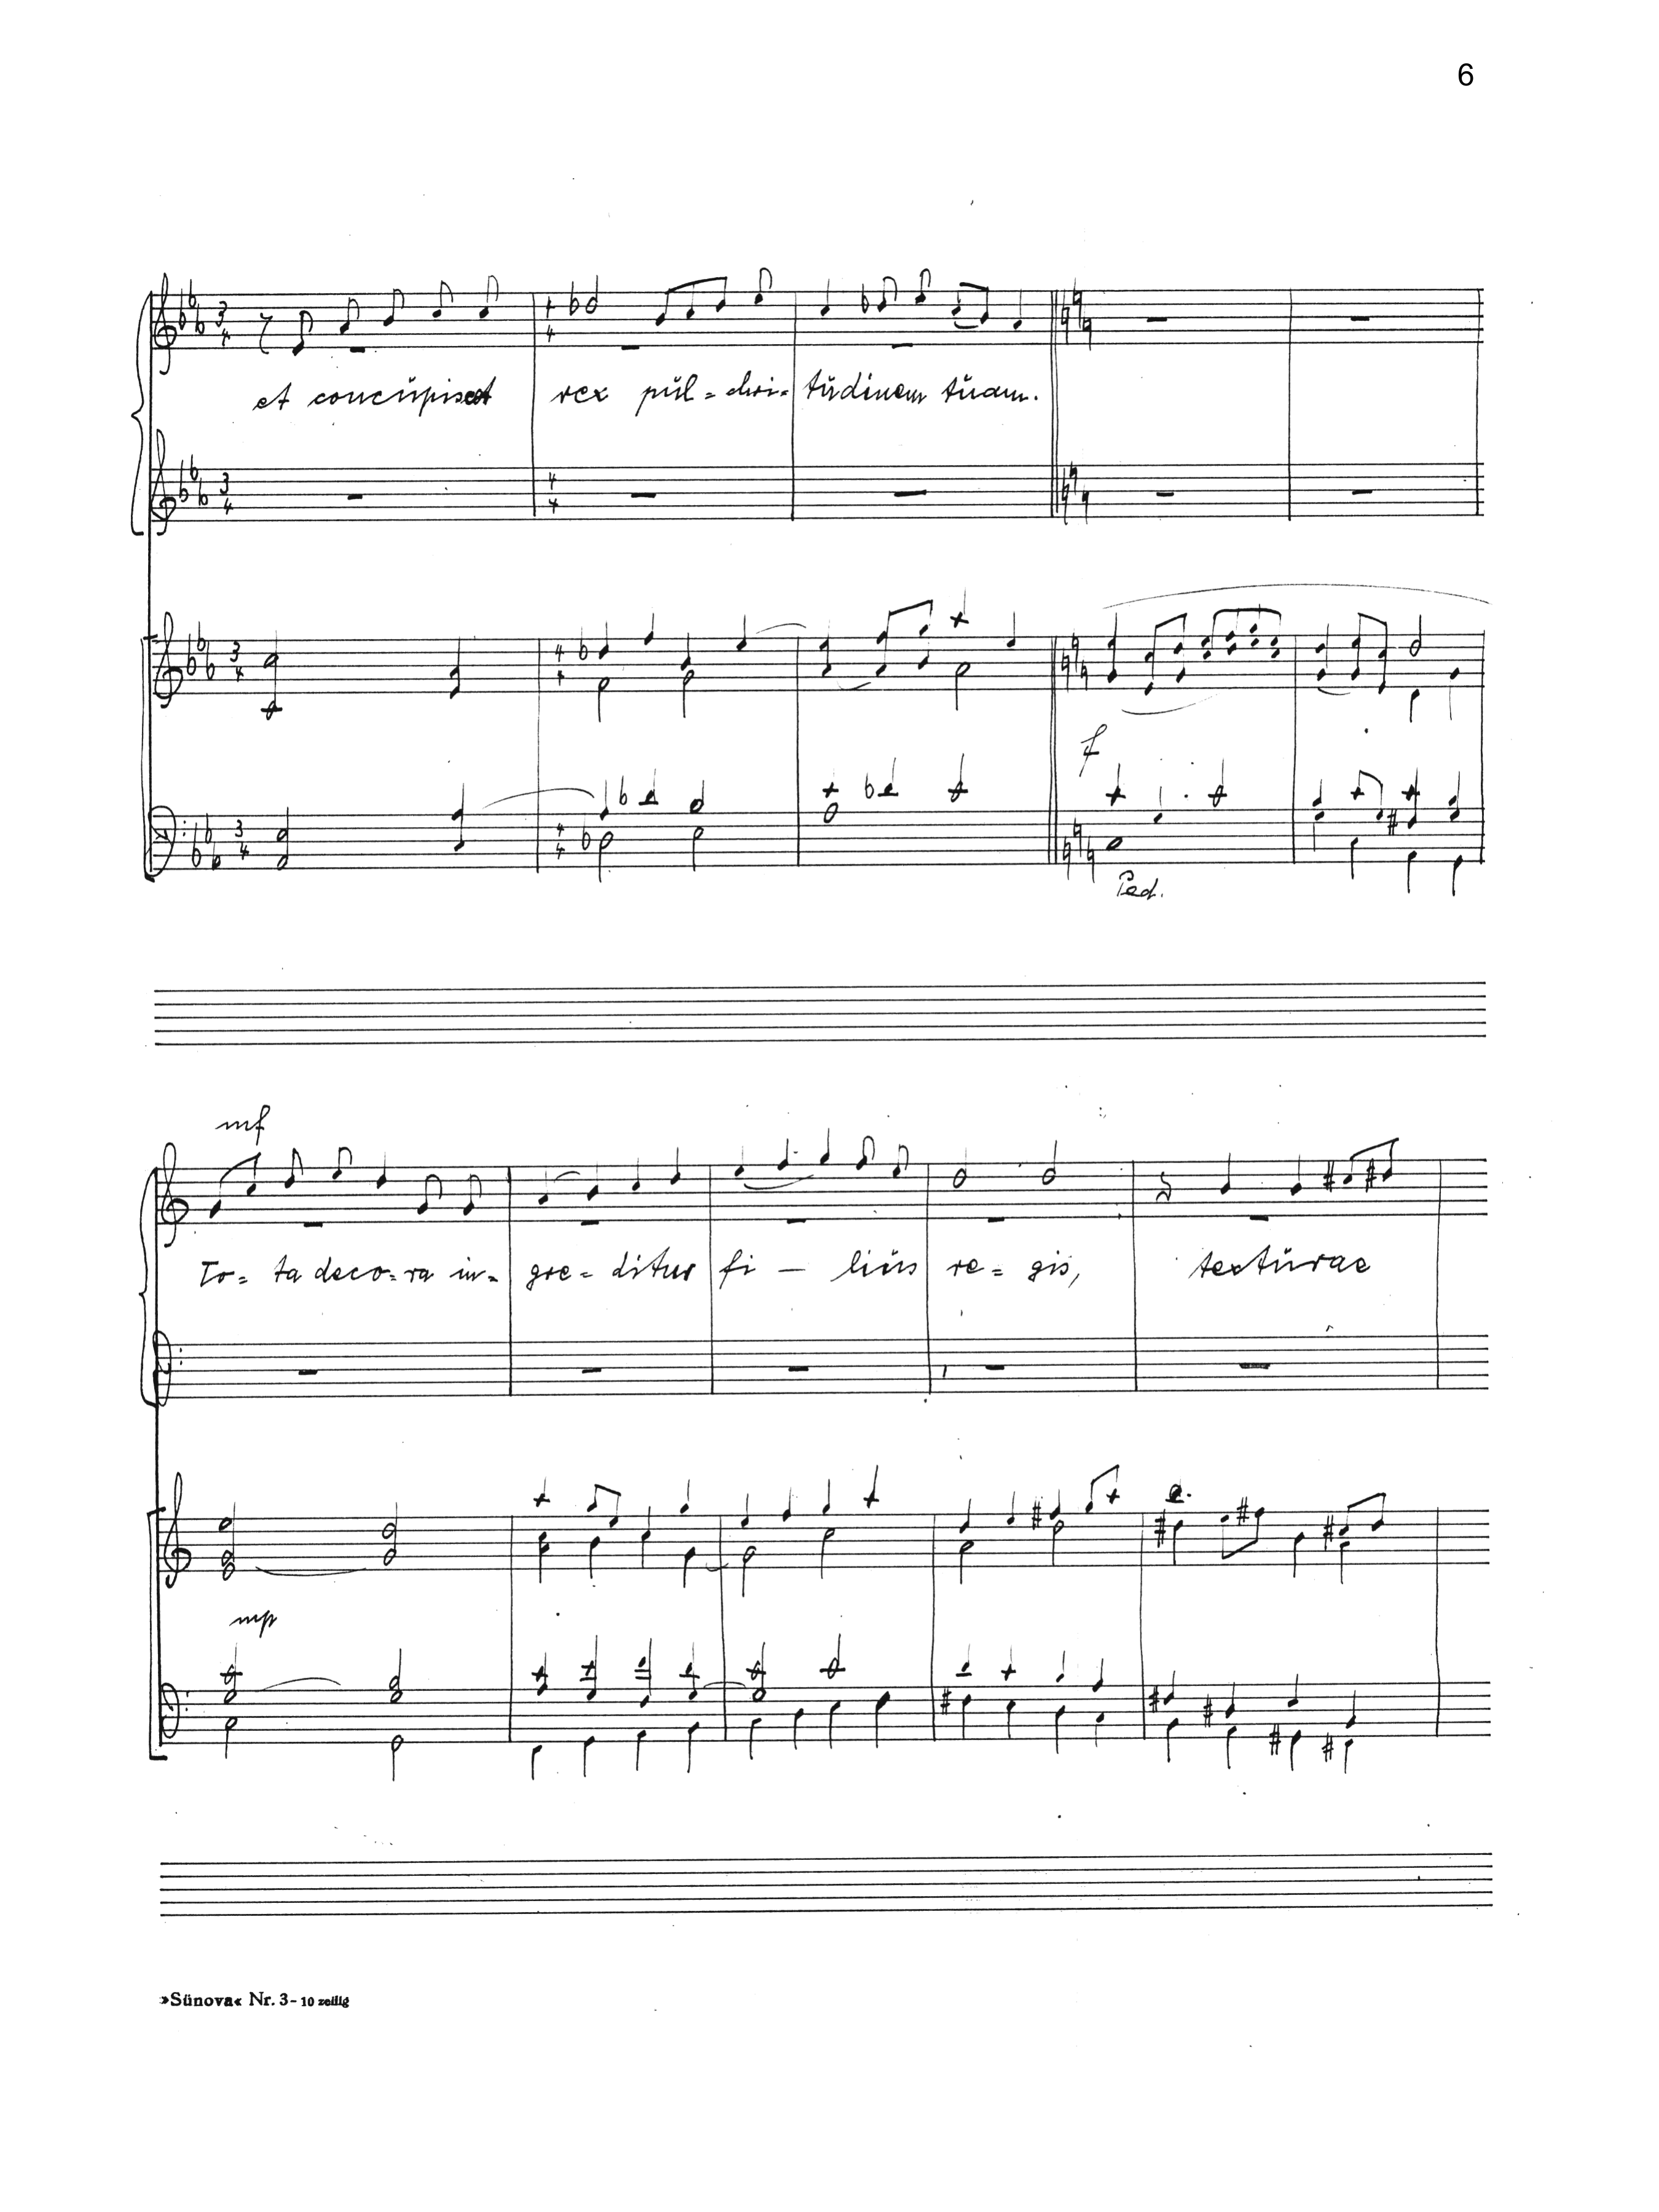 6
et concupiscet rex pul=chri=tudinem tuam.
f
Ped.
mf
To=ta deco=ra in=gre=ditur fi — lius re=gis, texturae
mp
»Sünova« Nr. 3 - 10 zeilig